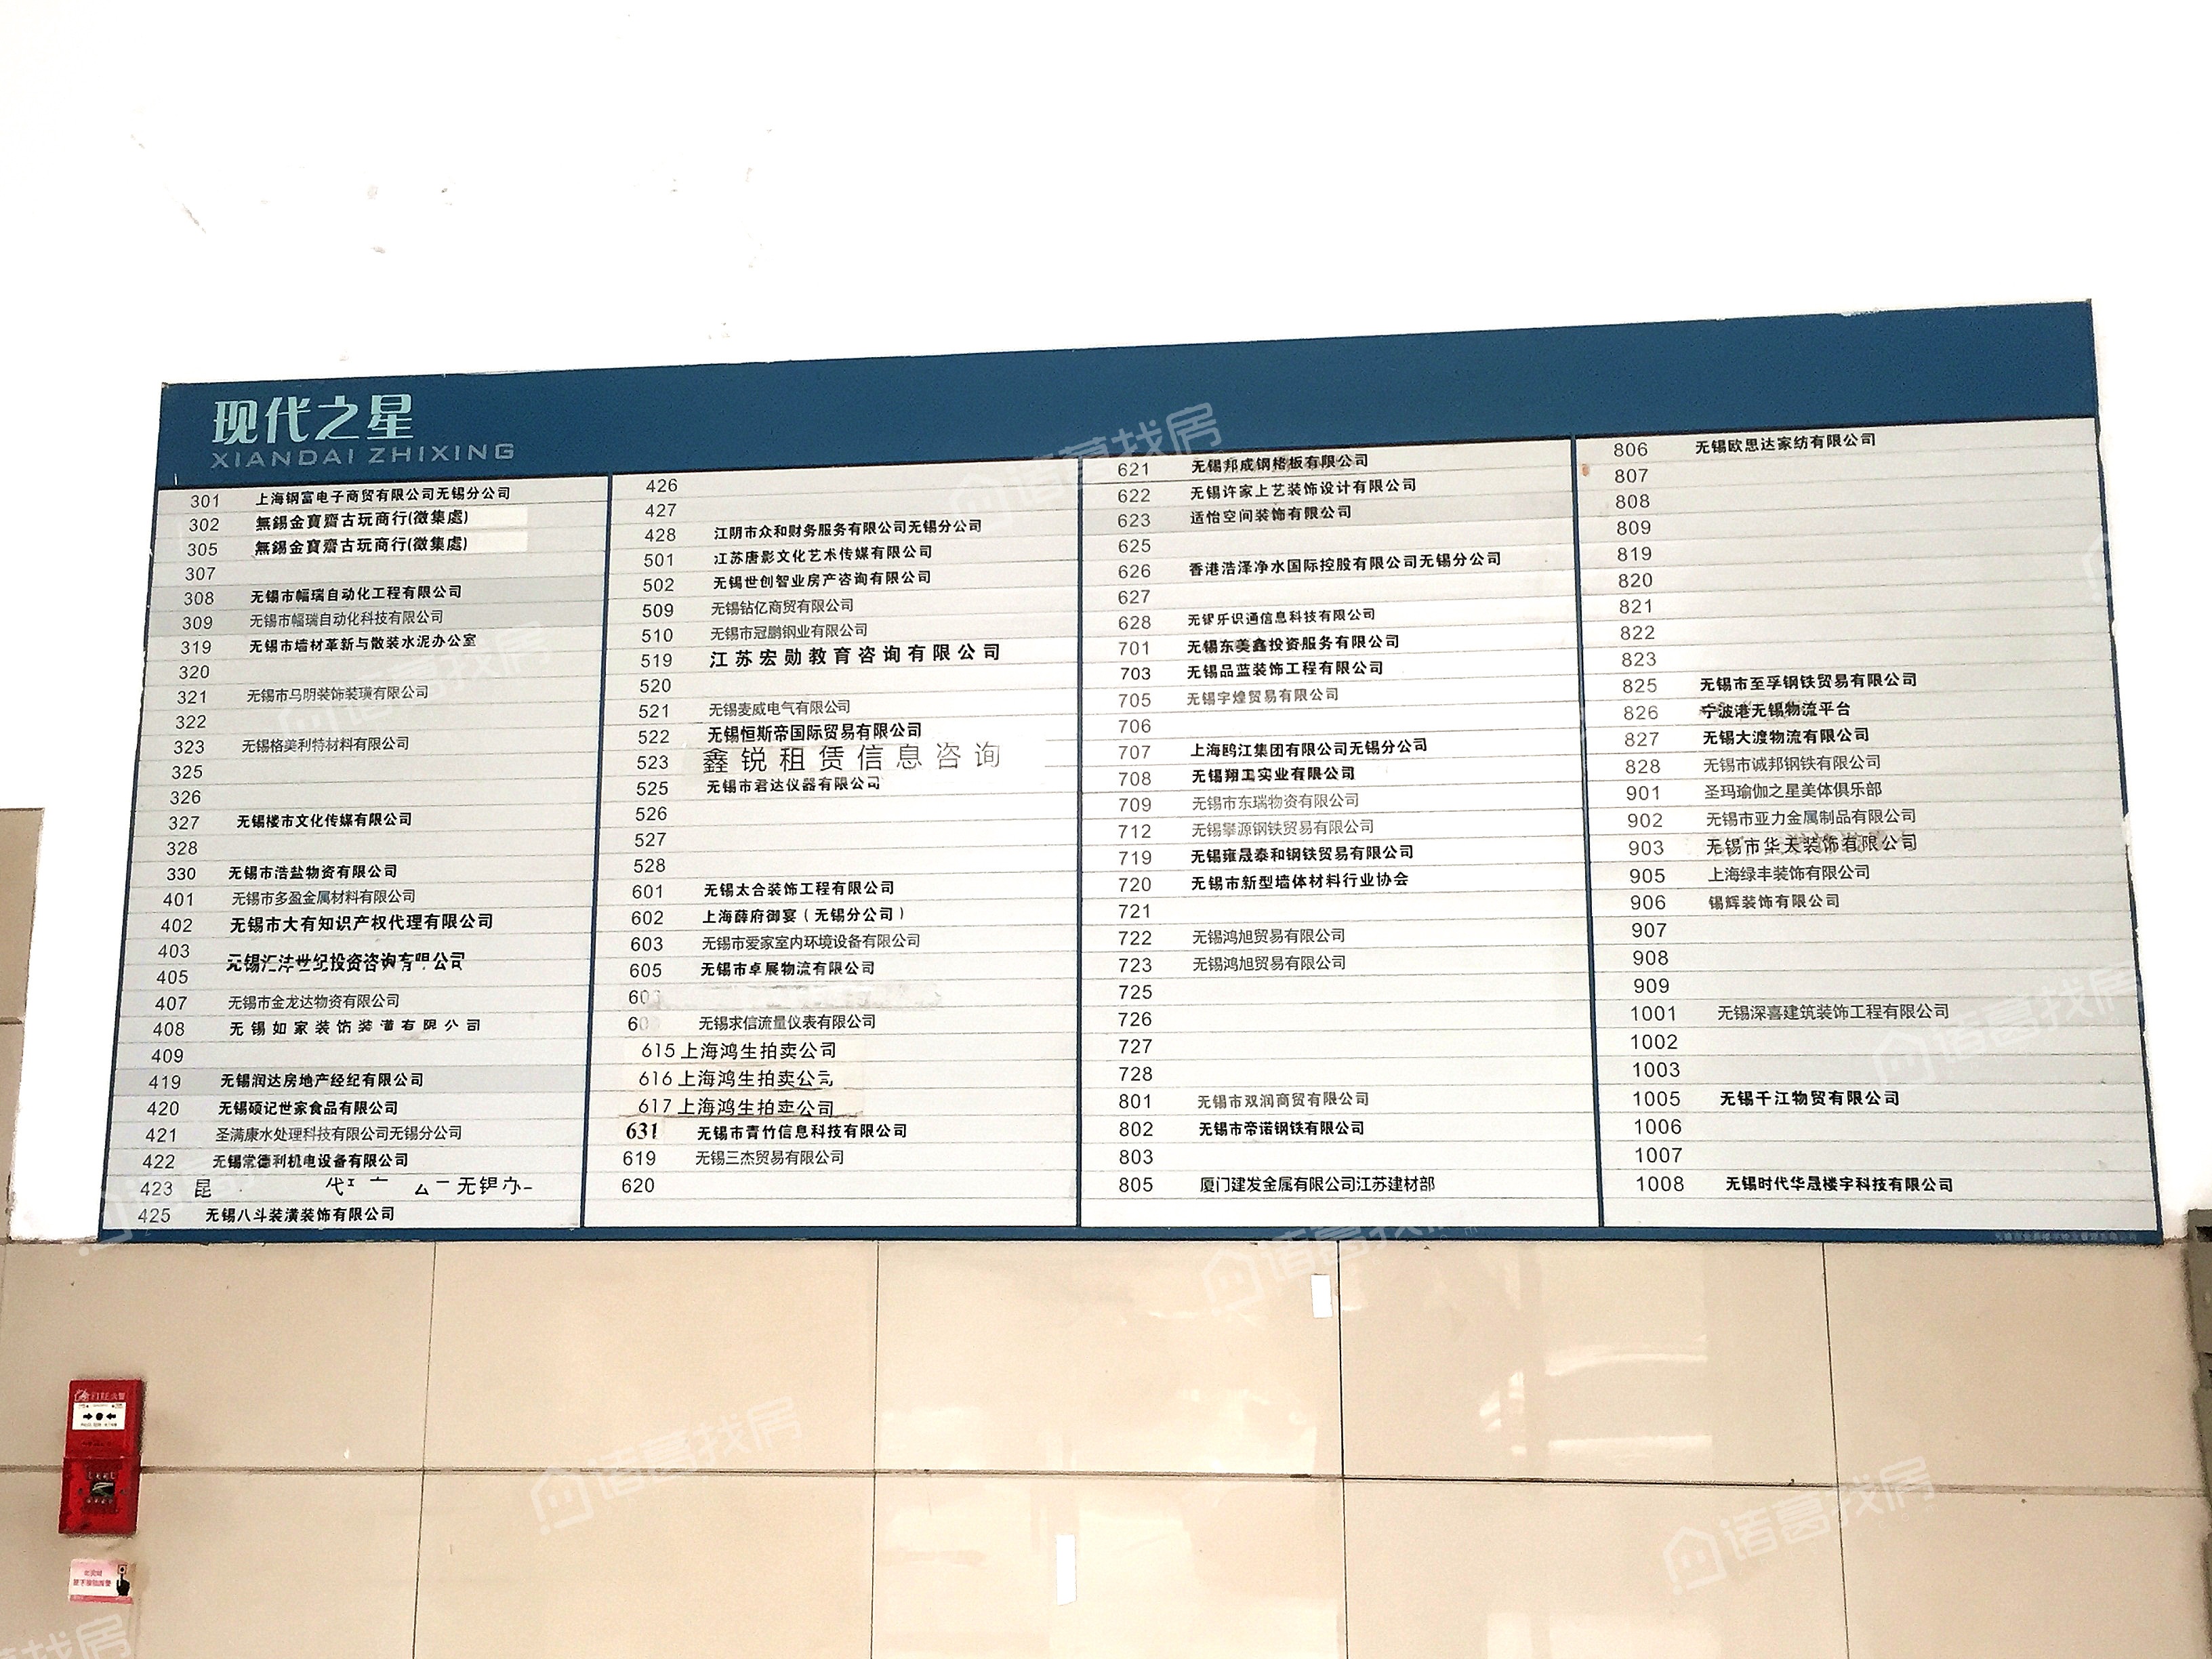 现代之星
XIANDAI ZHIXING
301 上海钢富电子商贸有限公司无锡分公司
302 無錫金寶齋古玩商行(徵集處)
305 無錫金寶齋古玩商行(徵集處)
307
308 无锡市幅瑞自动化工程有限公司
309 无锡市幅瑞自动化科技有限公司
319 无锡市墙材革新与散装水泥办公室
320
321 无锡市马明装饰装璜有限公司
322
323 无锡格美利特材料有限公司
325
326
327 无锡楼市文化传媒有限公司
328
330 无锡市浩盐物资有限公司
401 无锡市多盈金属材料有限公司
402 无锡市大有知识产权代理有限公司
403
无锡汇沣世纪投资咨询有限公司
405
407 无锡市金龙达物资有限公司
408 无锡如家装饰装潢有限公司
409
419 无锡润达房地产经纪有限公司
420 无锡硕记世家食品有限公司
421 圣满康水处理科技有限公司无锡分公司
422 无锡常德利机电设备有限公司
423 昆 代 无锡办
425 无锡八斗装潢装饰有限公司
426
427
428 江阴市众和财务服务有限公司无锡分公司
501 江苏唐影文化艺术传媒有限公司
502 无锡世创智业房产咨询有限公司
509 无锡钻亿商贸有限公司
510 无锡市冠鹏钢业有限公司
519 江苏宏勋教育咨询有限公司
520
521 无锡麦威电气有限公司
522 无锡恒斯帝国际贸易有限公司
523 鑫锐租赁信息咨询
525 无锡市君达仪器有限公司
526
527
528
601 无锡太合装饰工程有限公司
602 上海薛府御宴（无锡分公司）
603 无锡市爱家室内环境设备有限公司
605 无锡市卓展物流有限公司
无锡求信流量仪表有限公司
615 上海鸿生拍卖公司
616 上海鸿生拍卖公司
617 上海鸿生拍卖公司
631 无锡市青竹信息科技有限公司
619 无锡三杰贸易有限公司
620
621 无锡邦成钢格板有限公司
622 无锡许家上艺装饰设计有限公司
623 适怡空间装饰有限公司
625
626 香港浩泽净水国际控股有限公司无锡分公司
627
628 无锡乐识通信息科技有限公司
701 无锡东美鑫投资服务有限公司
703 无锡品蓝装饰工程有限公司
705 无锡宇煌贸易有限公司
706
707 上海鸥江集团有限公司无锡分公司
708 无锡翔工实业有限公司
709 无锡市东瑞物资有限公司
712 无锡攀源钢铁贸易有限公司
719 无锡雍晟泰和钢铁贸易有限公司
720 无锡市新型墙体材料行业协会
721
722 无锡鸿旭贸易有限公司
723 无锡鸿旭贸易有限公司
725
726
727
728
801 无锡市双润商贸有限公司
802 无锡市帝诺钢铁有限公司
803
805 厦门建发金属有限公司江苏建材部
806 无锡欧思达家纺有限公司
807
808
809
819
820
821
822
823
825 无锡市至孚钢铁贸易有限公司
826 宁波港无锡物流平台
827 无锡大渡物流有限公司
828 无锡市诚邦钢铁有限公司
901 圣玛瑜伽之星美体俱乐部
902 无锡市亚力金属制品有限公司
903 无锡市华天装饰有限公司
905 上海绿丰装饰有限公司
906 锡辉装饰有限公司
907
908
909
1001 无锡深喜建筑装饰工程有限公司
1002
1003
1005 无锡千江物贸有限公司
1006
1007
1008 无锡时代华晟楼宇科技有限公司
诸葛找房